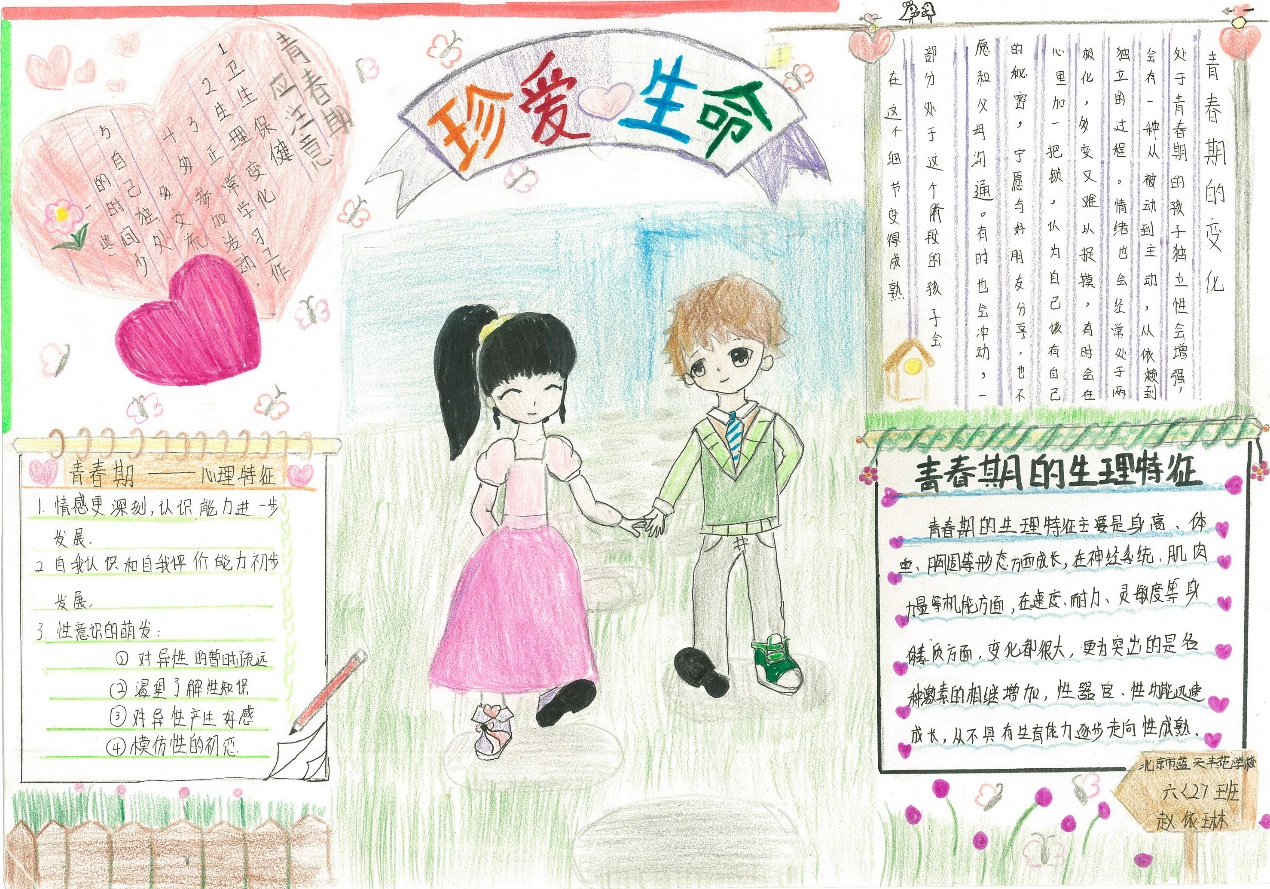 珍爱生命
青春期
应注意
1 卫生保健
2 生理变化
3 正常学习工作
4 多参加活动.
多交流
5 自己独处
的时间少
一些
青春期的变化
处于青春期的孩子独立性会增强，
会有一种从被动到主动，从依赖到
独立的过程。情绪也会经常处于两
极化，多变又难以捉摸，有时会在
心里加一把锁，认为自己保有自己
的秘密，宁愿与好朋友分享，也不
愿和父母沟通。有时也会冲动，一
部分处于这个阶段的孩子会
在这个细节变得成熟
青春期——心理特征
1. 情感更深刻,认识能力进一步
发展.
2 自我认识和自我评价能力初步
发展.
3. 性意识的萌发:
① 对异性的暂时疏远
② 渴望了解性知识
③ 对异性产生好感
④ 模仿性的初恋.
青春期的生理特征
青春期的生理特征主要是身高、体
重、胸围等形态方面成长,在神经系统、肌肉
力量等机能方面,在速度、耐力、灵敏度等身
体素质方面,变化都很大,更为突出的是各
种激素的相继增加,性器官、性功能迅速
成长,从不具有生育能力逐步走向性成熟.
北京市蓝天丰苑学校
六(2)班
赵依琳